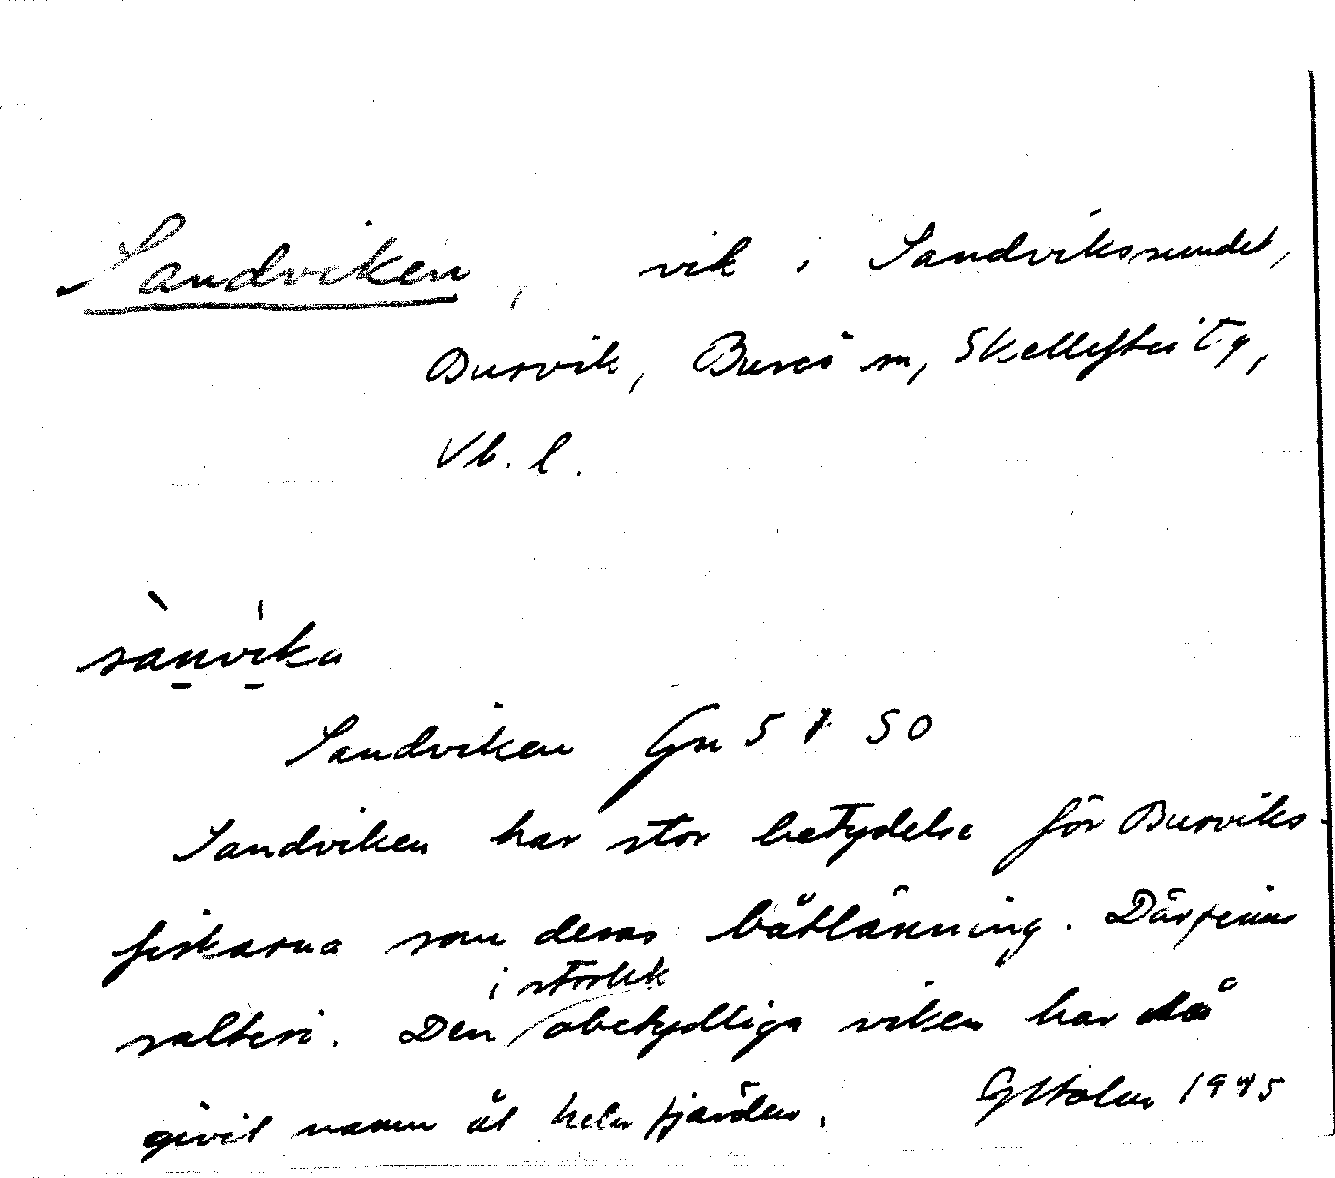 Sandviken, vik i Sandvikssundet,
Burvik, Bureå sn, Skellefteå tg,
Vb. l.
sànvíka
Sandviken Gn 5 7 50
Sandviken har stor betydelse för Burviks-
fiskarna som deras båtlänning. Där finns
salteri. Den i storlek obetydliga viken har då
givit namn åt hela fjärden. 1945